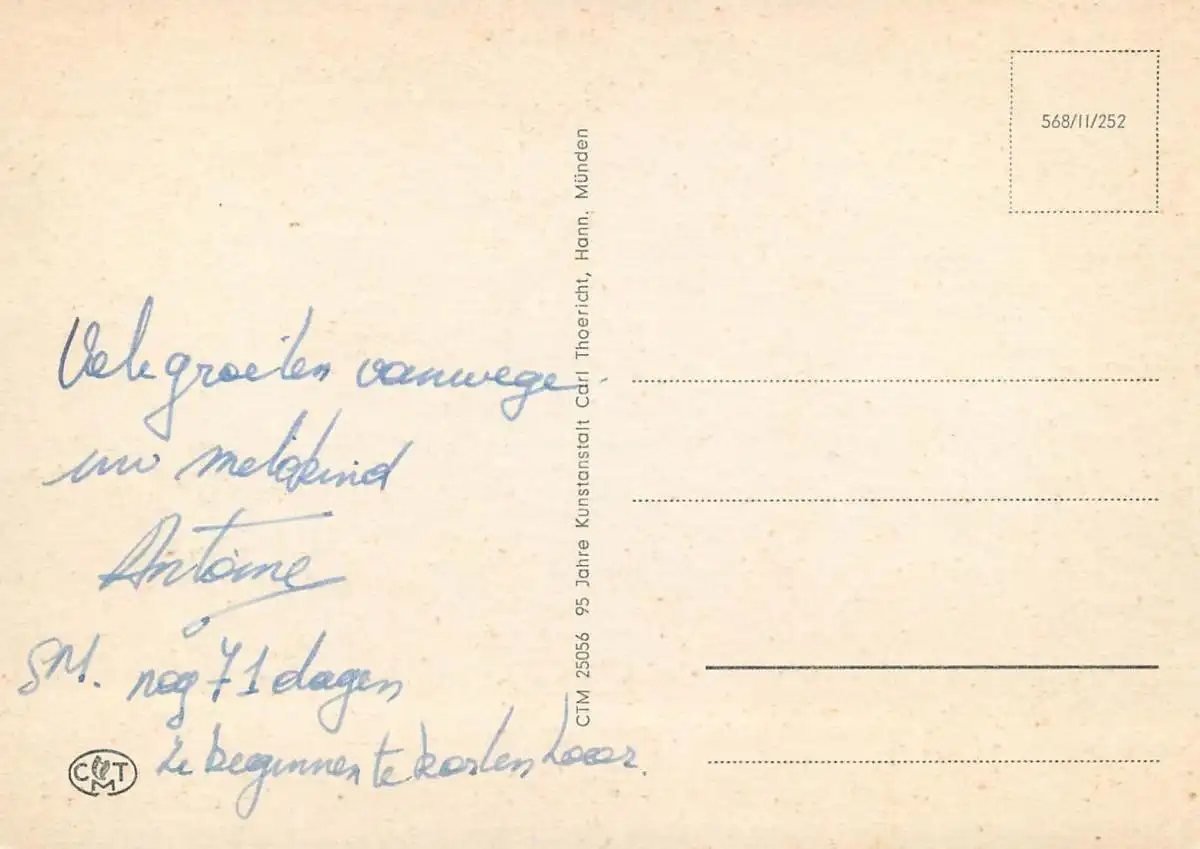 Vele groeten vanwege
uw metekind
Antoine
nog 71 dagen
ze beginnen te korten hoor.
CTM 25056 95 Jahre Kunstanstalt Carl Thoericht, Hann. Münden
568/II/252
CTM